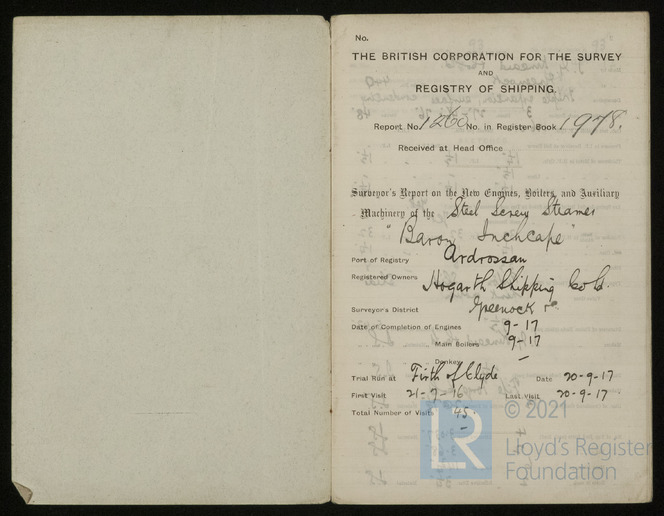 No.
THE BRITISH CORPORATION FOR THE SURVEY
AND
REGISTRY OF SHIPPING.
Report No. 1260 No. in Register Book 1978.
Received at Head Office
Surveyor's Report on the New Engines, Boilers, and Auxiliary
Machinery of the Steel Screw Steamer
"Baron Inchcape"
Port of Registry Ardrossan
Registered Owners Hogarth Shipping Co Ld.
Surveyor's District Greenock
Date of Completion of Engines 9-17
" Main Boilers 9-17
" Donkey —
Trial Run at Firth of Clyde Date 20-9-17
First Visit 21-7-16 Last Visit 20-9-17
Total Number of Visits 45
LR © 2021
Lloyd's Register
Foundation